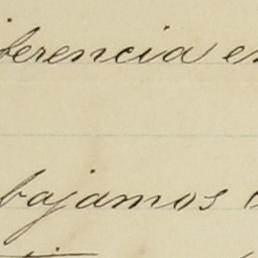 ferencia en
bajamos